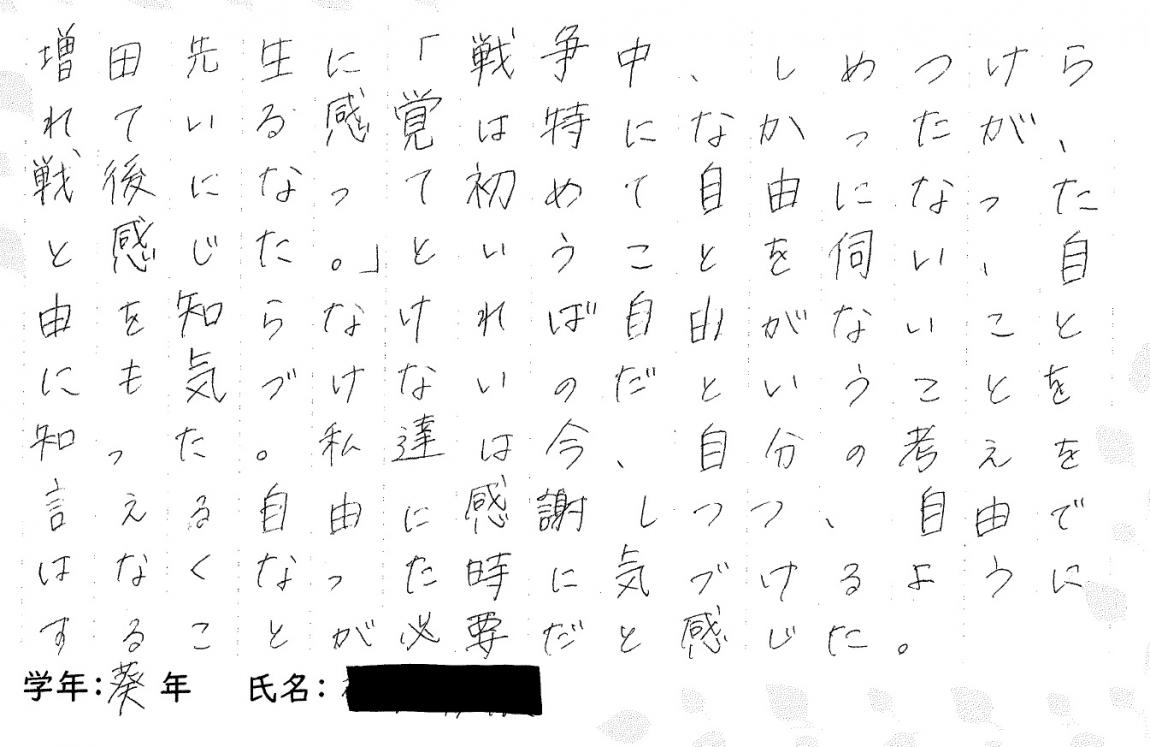 増田先生に「戦争中、しめつけら
れている感覚は特になかったが、
戦後になって初めて自由になった
と感じた。」ということを伺い、自
由を知らなければ自由がないこと
にも気づけないのだということを
知った。私達は今、自分の考えを
言える自由に感謝しつつ、自由で
はなくなった時に気づけるように
することが必要だと感じた。
学年：葵年 氏名：